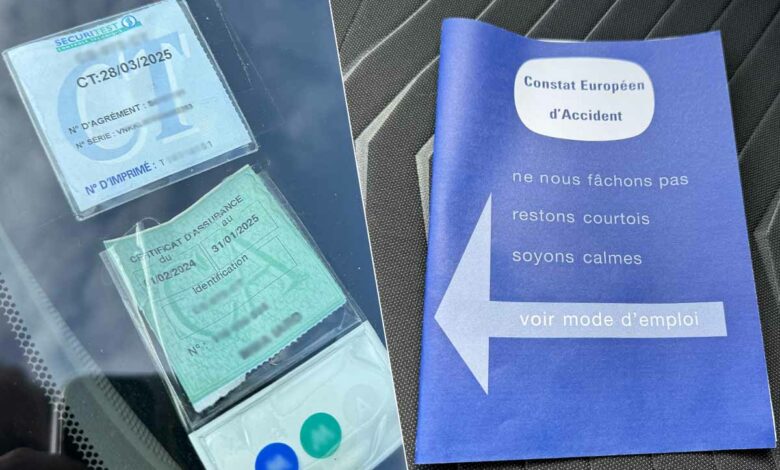 SECURITEST
CT:28/03/2025
CT
N° D'AGRÉMENT :
N° SÉRIE : VNK
N° D'IMPRIMÉ : T
CERTIFICAT D'ASSURANCE
du
au
/02/2024
31/01/2025
Identification
N° :
Constat Européen
d'Accident
ne nous fâchons pas
restons courtois
soyons calmes
voir mode d'emploi